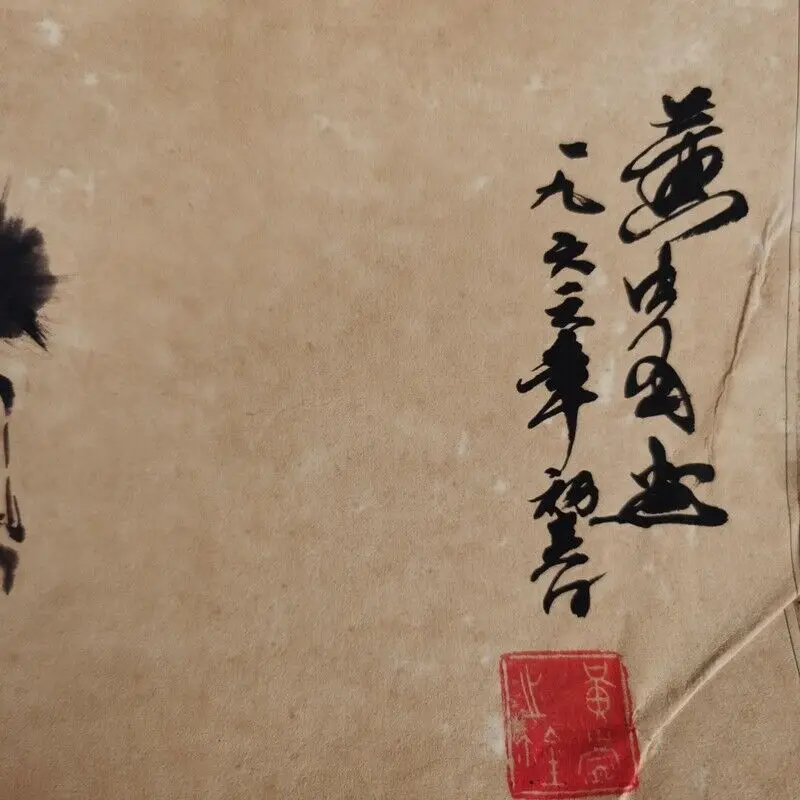 黄胄画
一九六三年初春
黄胄
之